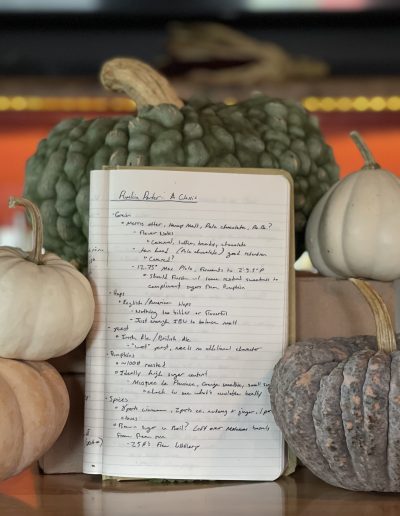 Pumpkin Porter: A Classic
- Grain
* Marris otter, Honey Malt, Pale chocolate,
- Flavor Notes
- Caramel, toffee, bready, chocolate
- tan head (Pale chocolate) good retention
- Carmel?
- 12.75° Max Plato, Ferments to 2.9-3°P
* Should Finish w/ some residual sweetness to
compliment sugars from Pumpkin
- Hops
* English/American Hops
- Nothing too bitter or flavorful
- Just enough IBU to balance malt
- yeast
* Irish Ale / British Ale
- yeast, needs no additional character
- Pumpkins
* roasted
* Ideally high sugar content
- Musquee de Provence, Orange smoothie, small sugar
- check to see what's available locally
- Spices
* 3 parts cinnamon, 2 parts nutmeg & ginger, 1 part
cloves
* Brown sugar in Boil? Left over Molasses barrels
From
- 25#'s From Distillery